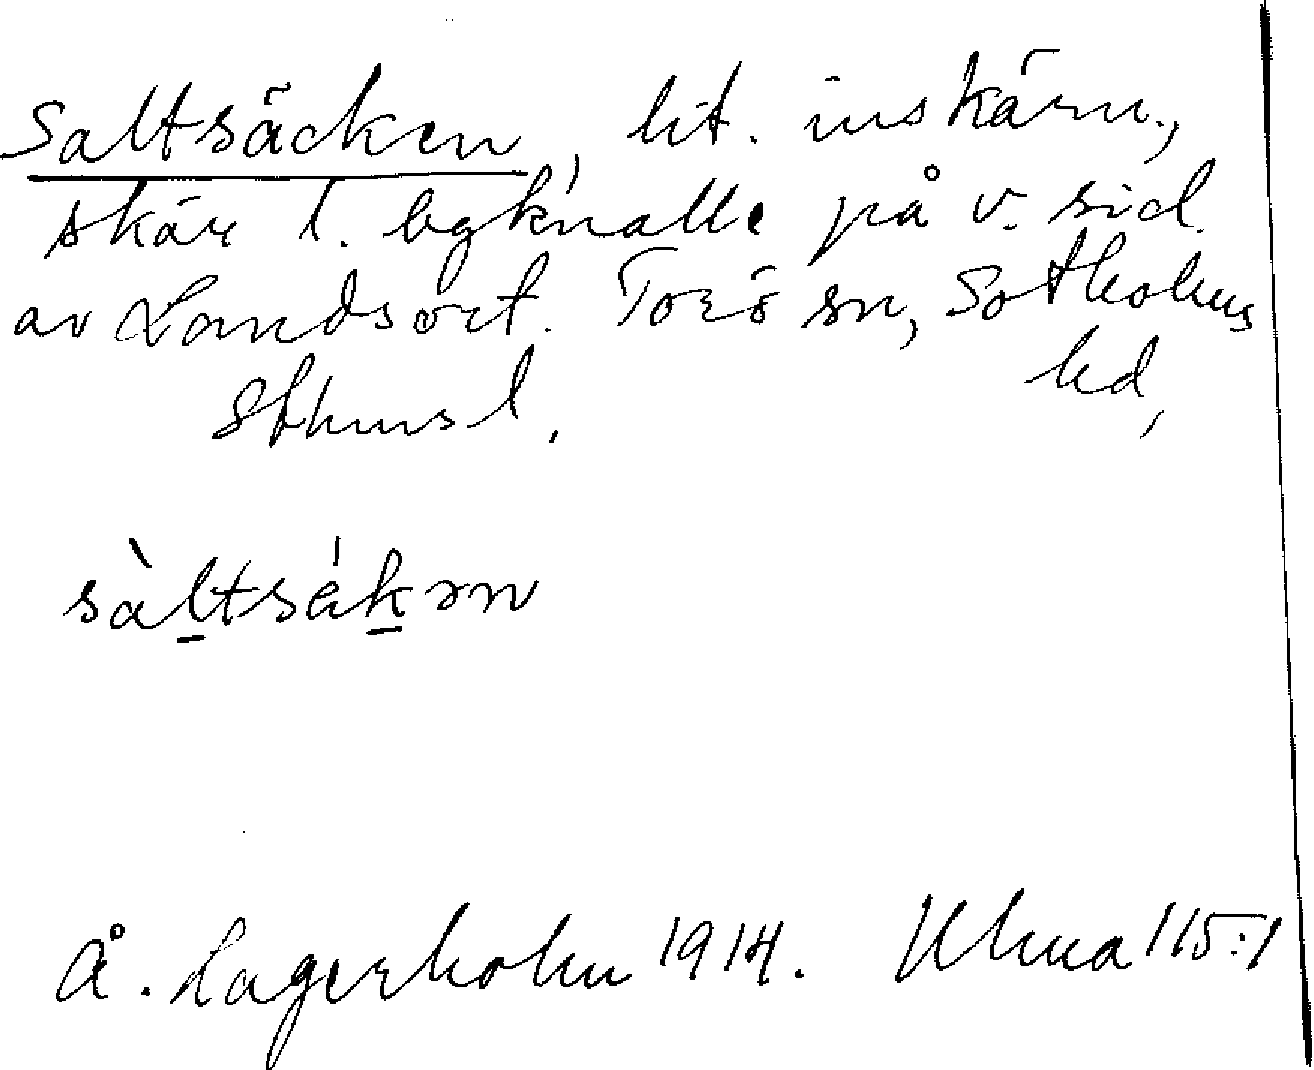 Saltsäcken, lit. inskärn.,
skär l. bgknalle på v. sid.
av Landsort. Torö sn, Sotholms
hd,
Sthms l.
sàltsákən
Å. Lagerholm 1914. Ulma 115:1